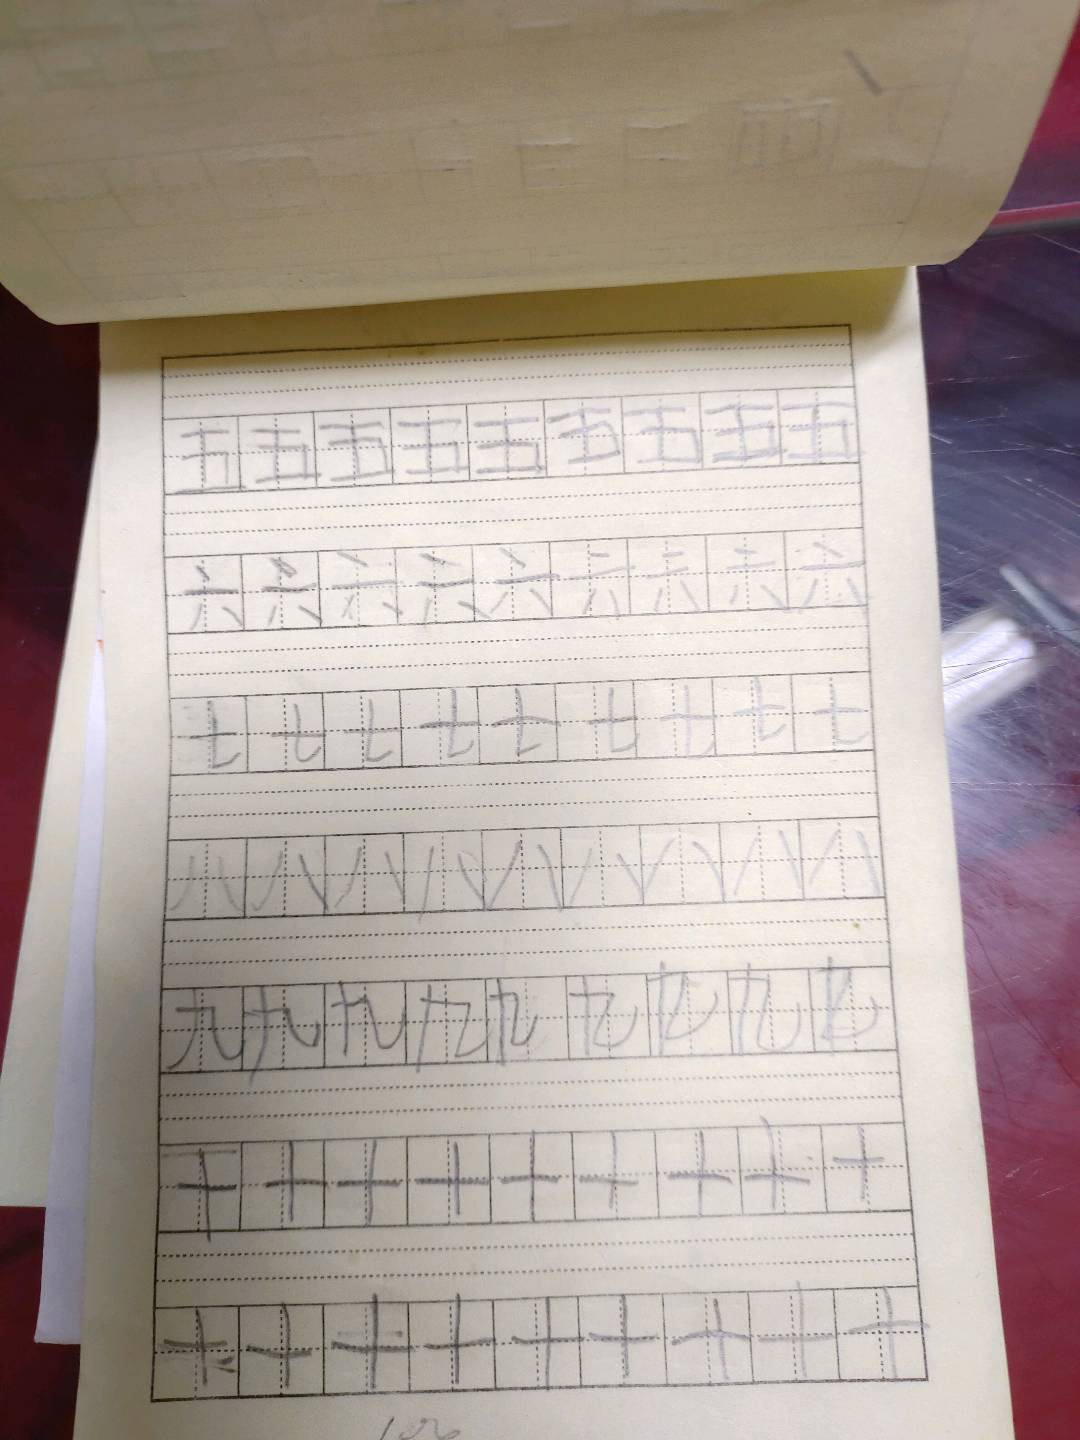 五五五五五五五五五
六六六六六六六六六
七七七七七七七七七
八八八八八八八八八
九九九九九九九九九
十十十十十十十十十
十十十十十十十十十